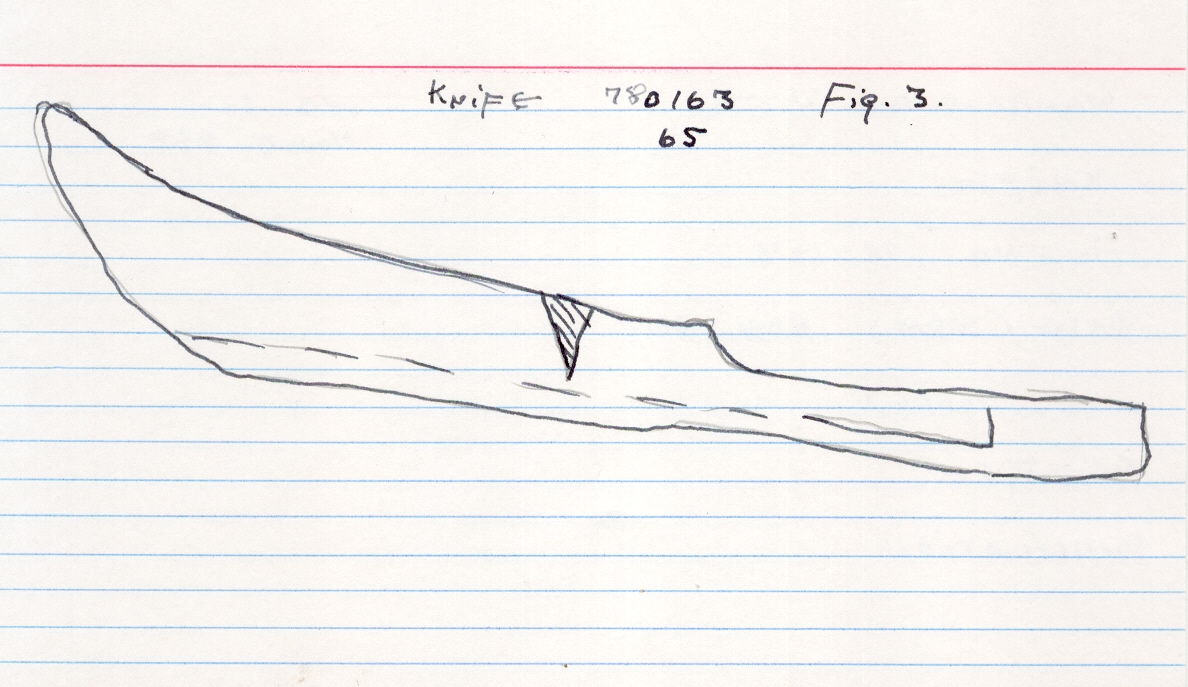 KNIFE 780163 Fig. 3.
65